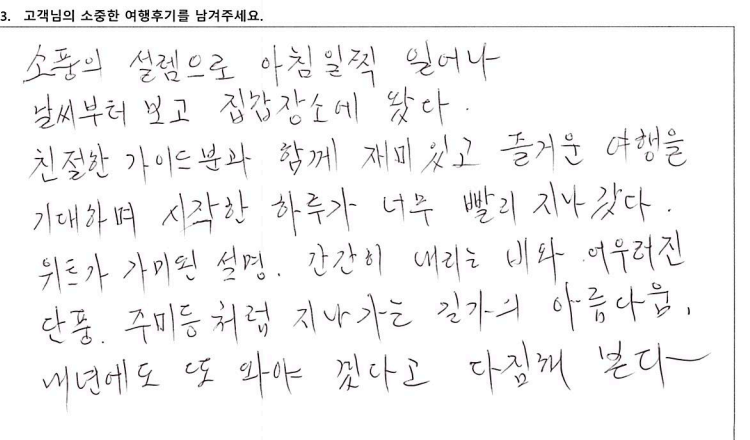 3. 고객님의 소중한 여행후기를 남겨주세요.
소풍의 설렘으로 아침일찍 일어나
날씨부터 보고 집합장소에 왔다.
친절한 가이드분과 함께 재미있고 즐거운 여행을
기대하며 시작한 하루가 너무 빨리 지나갔다.
위트가 가미된 설명. 간간히 내리는 비와 어우러진
단풍. 주마등처럼 지나가는 길가의 아름다움,
내년에도 또 와야 겠다고 다짐해 본다~